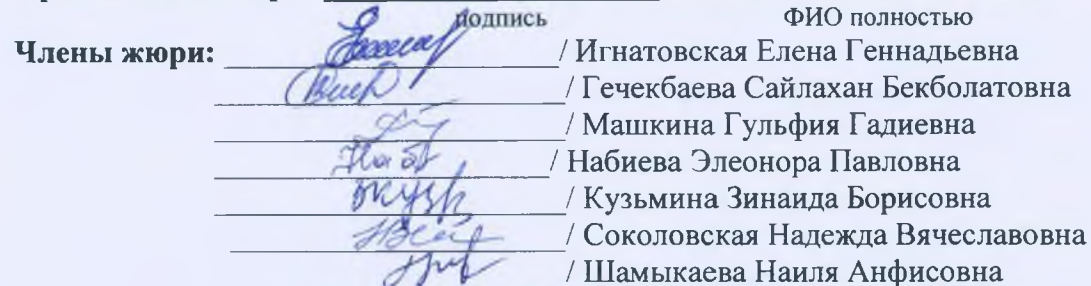 подпись ФИО полностью
Члены жюри: / Игнатовская Елена Геннадьевна
/ Гечекбаева Сайлахан Бекболатовна
/ Машкина Гульфия Гадиевна
Наб / Набиева Элеонора Павловна
/ Кузьмина Зинаида Борисовна
/ Соколовская Надежда Вячеславовна
/ Шамыкаева Наиля Анфисовна